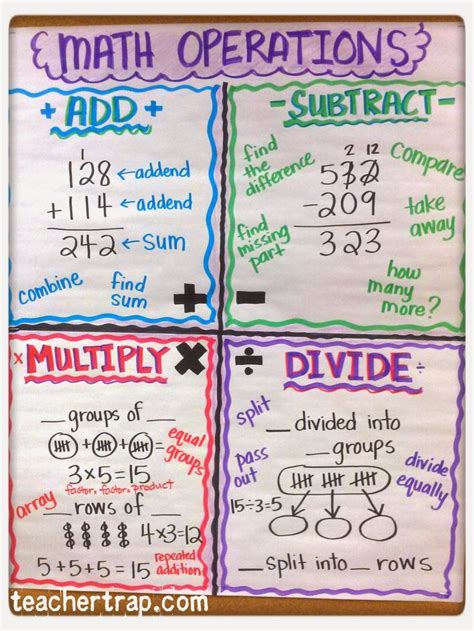 MATH OPERATIONS
+ ADD +
1
128 ← addend
+114 ← addend
242 ← Sum
combine
find
sum
+
- SUBTRACT -
find
the
difference
2 12
532
-209
323
Compare
take
away
find
missing
part
how
many
more?
-
× MULTIPLY ×
_ groups of _
+ + =
equal
groups
3×5=15
factor, factor, product
array
_ rows of _
4×3=12
5+5+5=15
repeated
addition
÷ DIVIDE ÷
split
_ divided into
_ groups
pass
out
divide
equally
15÷3=5
_ split into _ rows
teachertrap.com